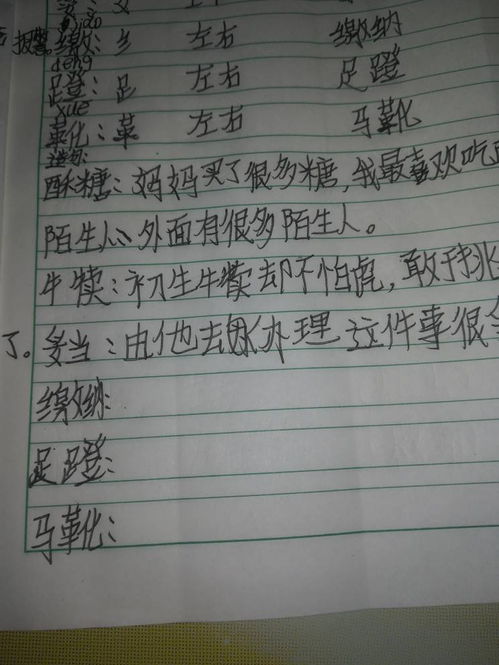 缴：纟 左右 缴纳
deng
蹬：足 左右 足蹬
xue
靴：革 左右 马靴
造句
酥糖：妈妈买了很多糖，我最喜欢吃
陌生人：外面有很多陌生人。
牛犊：初生牛犊却不怕虎，敢于挑
了。妥当：由他去办理这件事很
缴纳：
足蹬：
马靴：